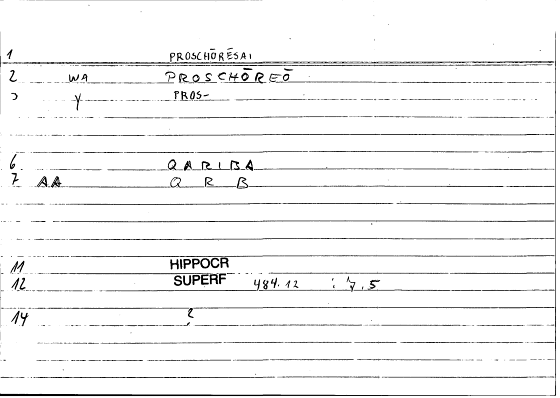 1 PROSCHŌRĒSAI
2 WA PROSCHŌREŌ
Y PROS-
6 QARIBA
7 AA Q R B
11 HIPPOCR
12 SUPERF 484.12 : 7.5
14 ?